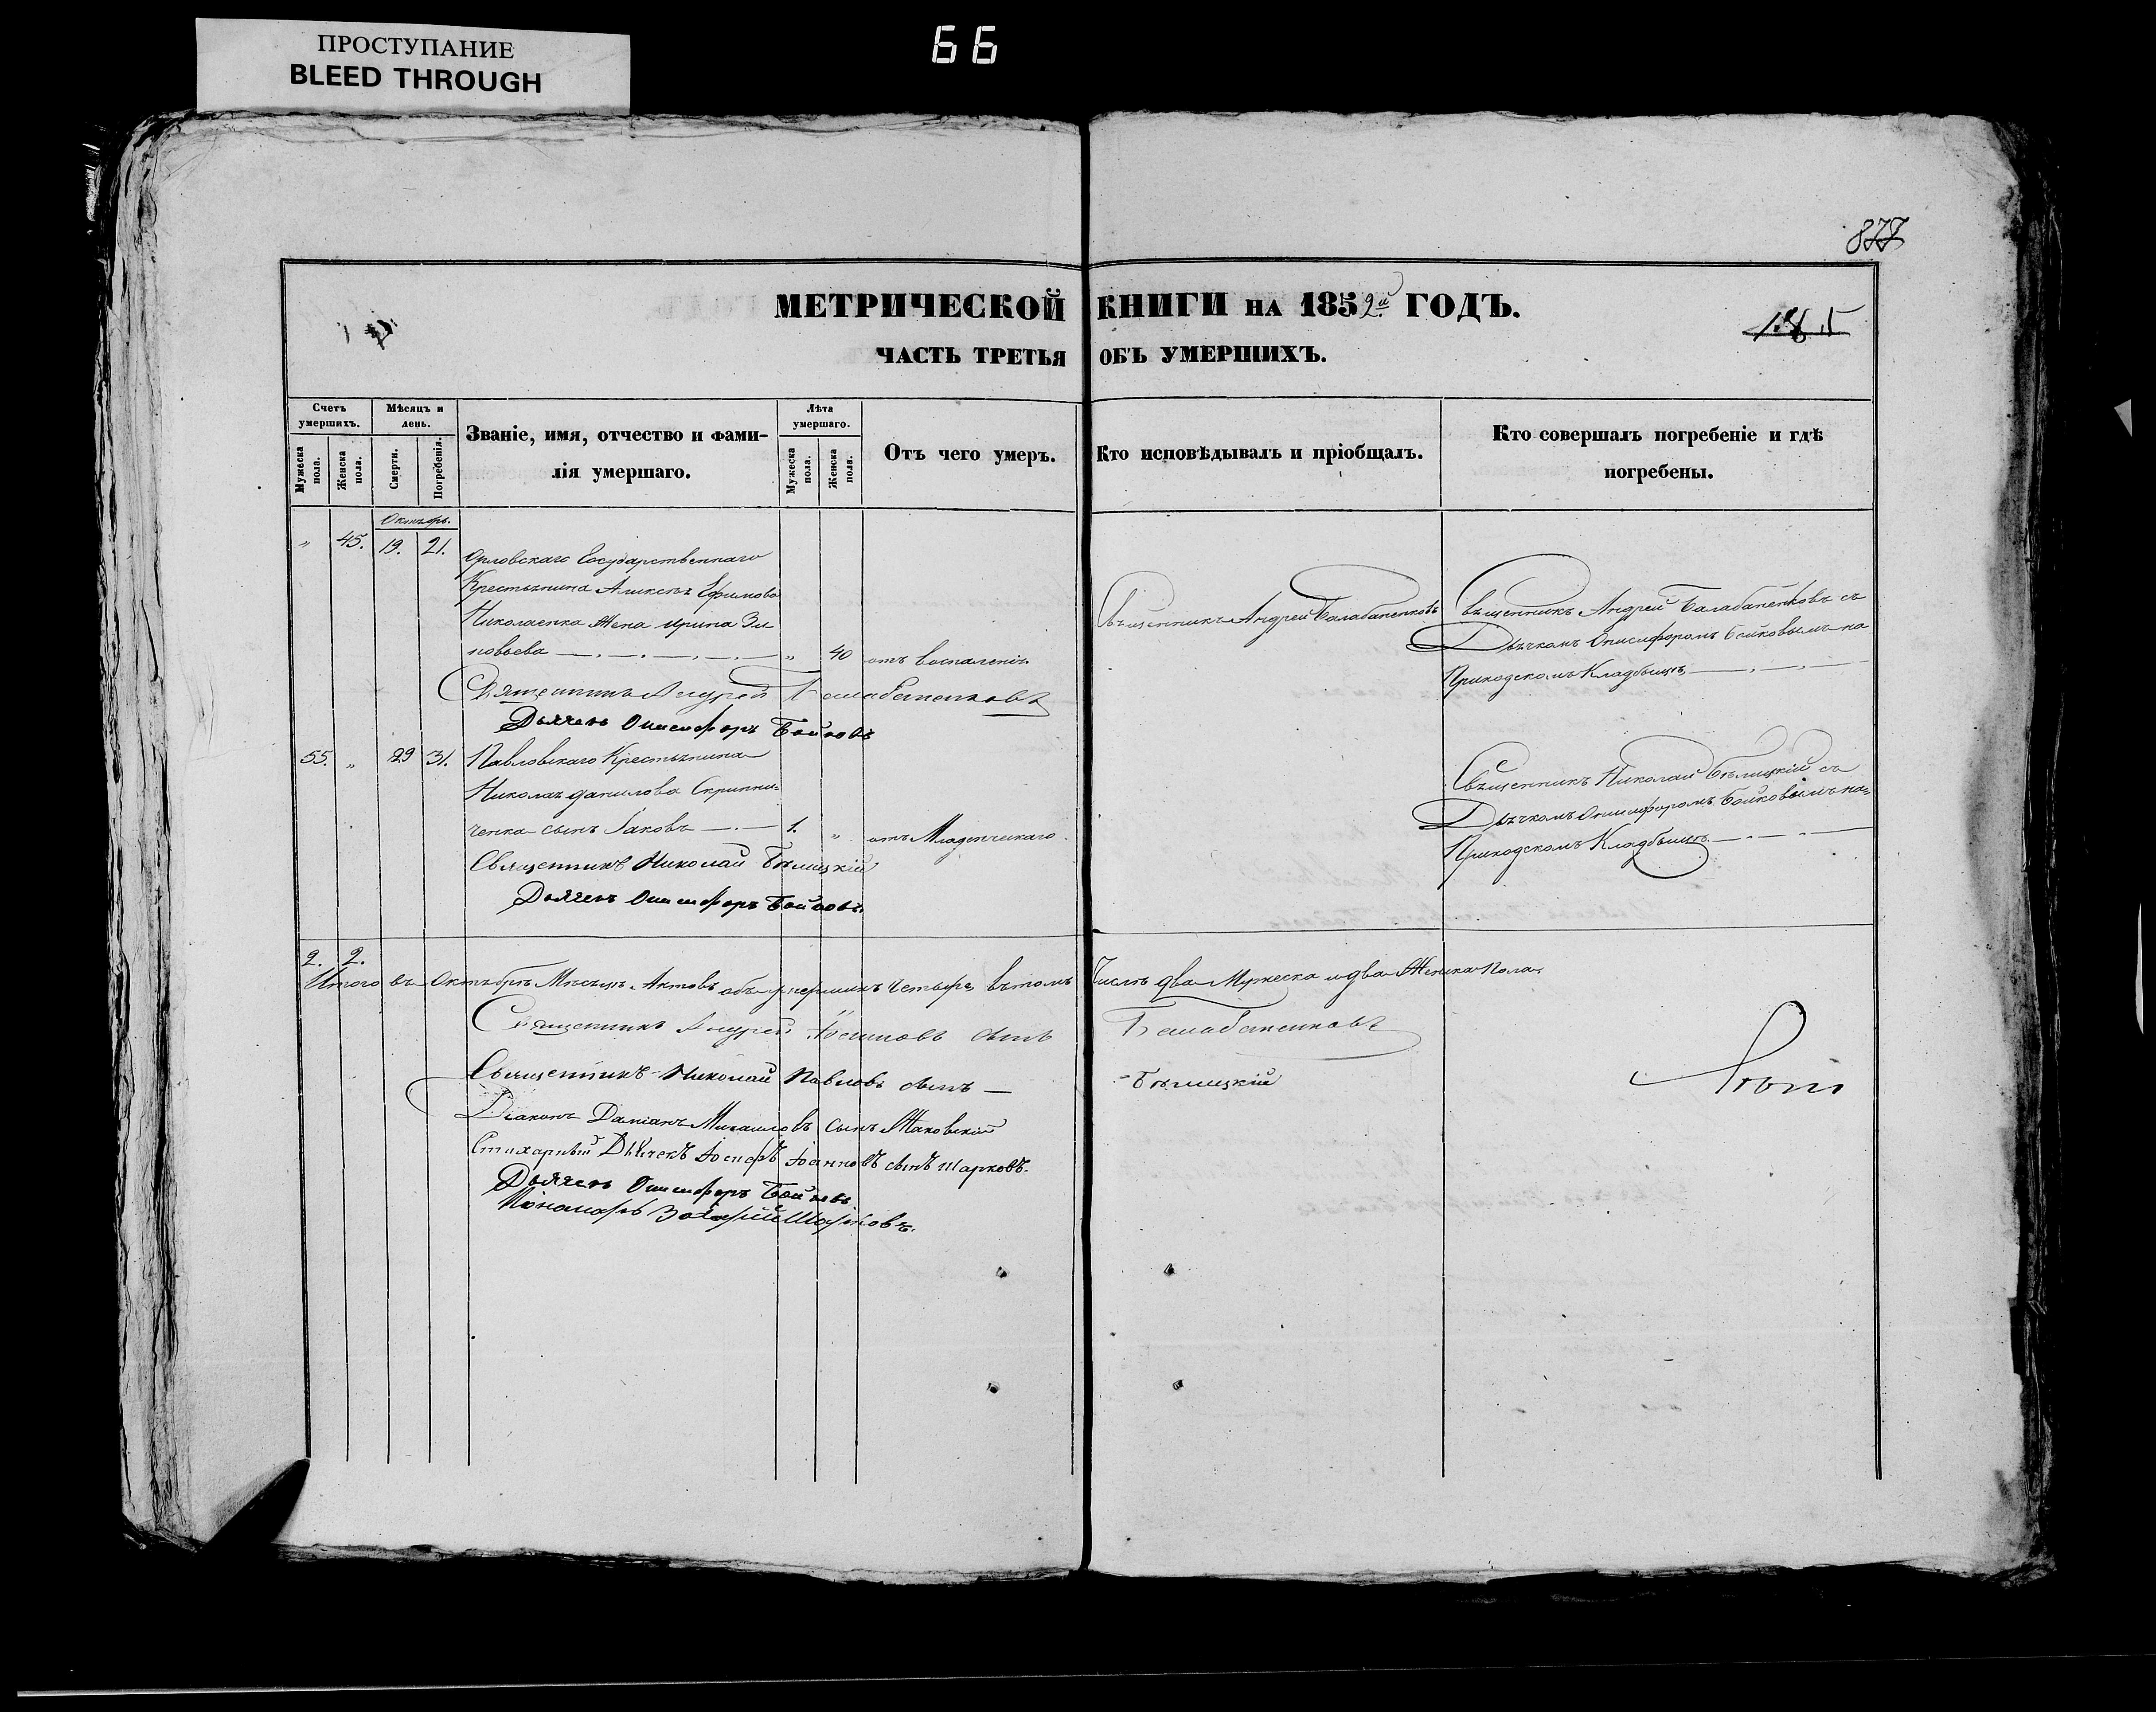 ПРОСТУПАНИЕ
BLEED THROUGH
66
877
МЕТРИЧЕСКОЙ КНИГИ НА 1852й ГОДЪ.
185
ЧАСТЬ ТРЕТЬЯ ОБЪ УМЕРШИХЪ.
Счетъ умершихъ.
Мужеска пола.
Женска пола.
Мѣсяцъ и день.
Смерти.
Погребенія.
Званіе, имя, отчество и фами-
лія умершаго.
Лѣта умершаго.
Мужеска пола.
Женска пола.
Отъ чего умеръ.
Кто исповѣдывалъ и пріобщалъ.
Кто совершалъ погребеніе и гдѣ
погребены.
Октябрь.
" 45. 19. 21.
Орловскаго Государственнаго
Крестьянина Алексѣя Ефимова
Николаенка Жена Ирина Зи-
новьева " 40 отъ воспаленія
Священникъ Андрей Балабаненковъ
Священникъ Андрей Балабаненковъ съ
Дьячкомъ Онисифоромъ Бойковымъ на
Приходскомъ Кладбищѣ
Священникъ Андрей Балабаненковъ
Дьячекъ Онисифоръ Бойковъ
55. " 29 31. Павловскаго Крестьянина
Николая Данилова Скрипни-
ченка сынъ Іаковъ 1. " отъ Младенческаго
Священникъ Николай Бѣлицкій съ
Дьячкомъ Онисифоромъ Бойковымъ на
Приходскомъ Кладбищѣ
Священникъ Николай Бѣлицкій
Дьячекъ Онисифоръ Бойковъ.
2. 2.
Итого въ Октябрѣ Мѣсяцѣ Актовъ объ умершихъ четыре, въ томъ Числѣ два Мужеска и два Женска Пола.
Священникъ Андрей Осиповъ сынъ Балабаненковъ
Священникъ Николай Павловъ сынъ — Бѣлицкій
Діаконъ Даміанъ Михайловъ сынъ Маковскій
Стихарный Дьячекъ Іосифъ Іоанновъ сынъ Шарковъ.
Дьячекъ Онисифоръ Бойковъ
Пономарь Захарій Шарковъ.